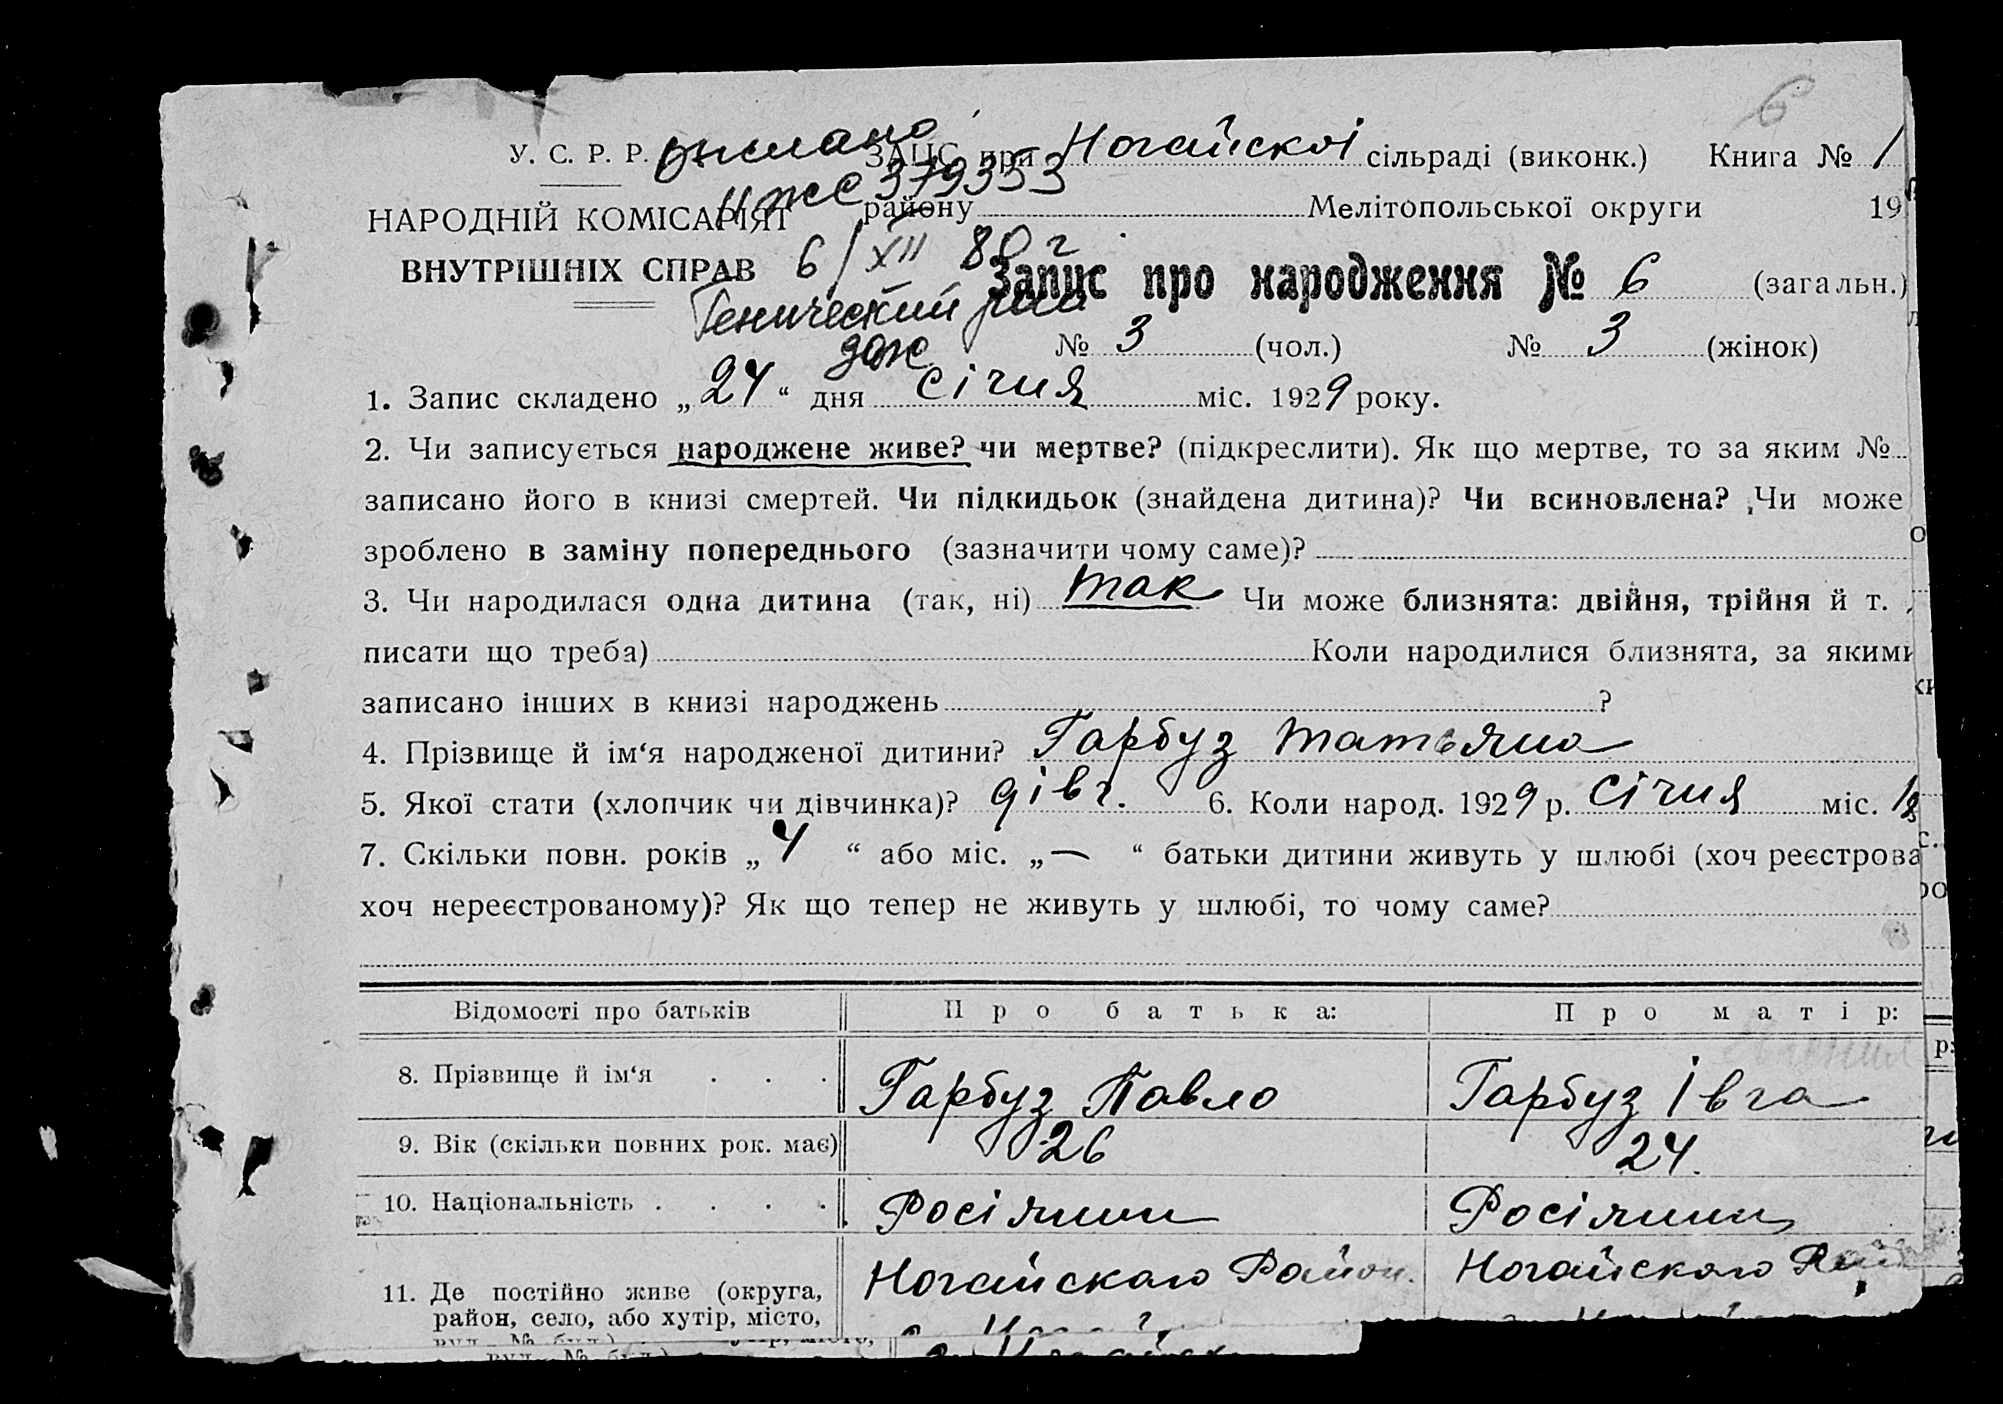 6
У. С. Р. Р.
НАРОДНІЙ КОМІСАРІЯТ
ВНУТРІШНІХ СПРАВ
ЗАЦС при Ногайскоі сільраді (виконк.) Книга № 1
району Мелітопольської округи 19
379353
6/XII 80 г.
Генический
Запис про народження № 6 (загальн.)
№ 3 (чол.) № 3 (жінок)
1. Запис складено „24“ дня січня міс. 1929 року.
2. Чи записується народжене живе? чи мертве? (підкреслити). Як що мертве, то за яким №
записано його в книзі смертей. Чи підкидьок (знайдена дитина)? Чи всиновлена? Чи може
зроблено в заміну попереднього (зазначити чому саме)?
3. Чи народилася одна дитина (так, ні) так Чи може близнята: двійня, трійня й т.
писати що треба) Коли народилися близнята, за якими
записано інших в книзі народжень ?
4. Прізвище й ім‘я народженої дитини? Гарбуз Татьяна
5. Якої стати (хлопчик чи дівчинка)? дівч. 6. Коли народ. 1929 р. Січня міс.
7. Скільки повн. років „4“ або міс. „—“ батьки дитини живуть у шлюбі (хоч реєстрова
хоч нереєстрованому)? Як що тепер не живуть у шлюбі, то чому саме?
Відомості про батьків Про батька: Про матір:
8. Прізвище й ім‘я . . . Гарбуз Павло Гарбуз Івга
9. Вік (скільки повних рок. має) 26 24.
10. Національність . . . . Росіянин Росіянин
11. Де постійно живе (округа, Ногайскаго Район. Ногайскаго
район, село, або хутір, місто,
вул., № буд.)